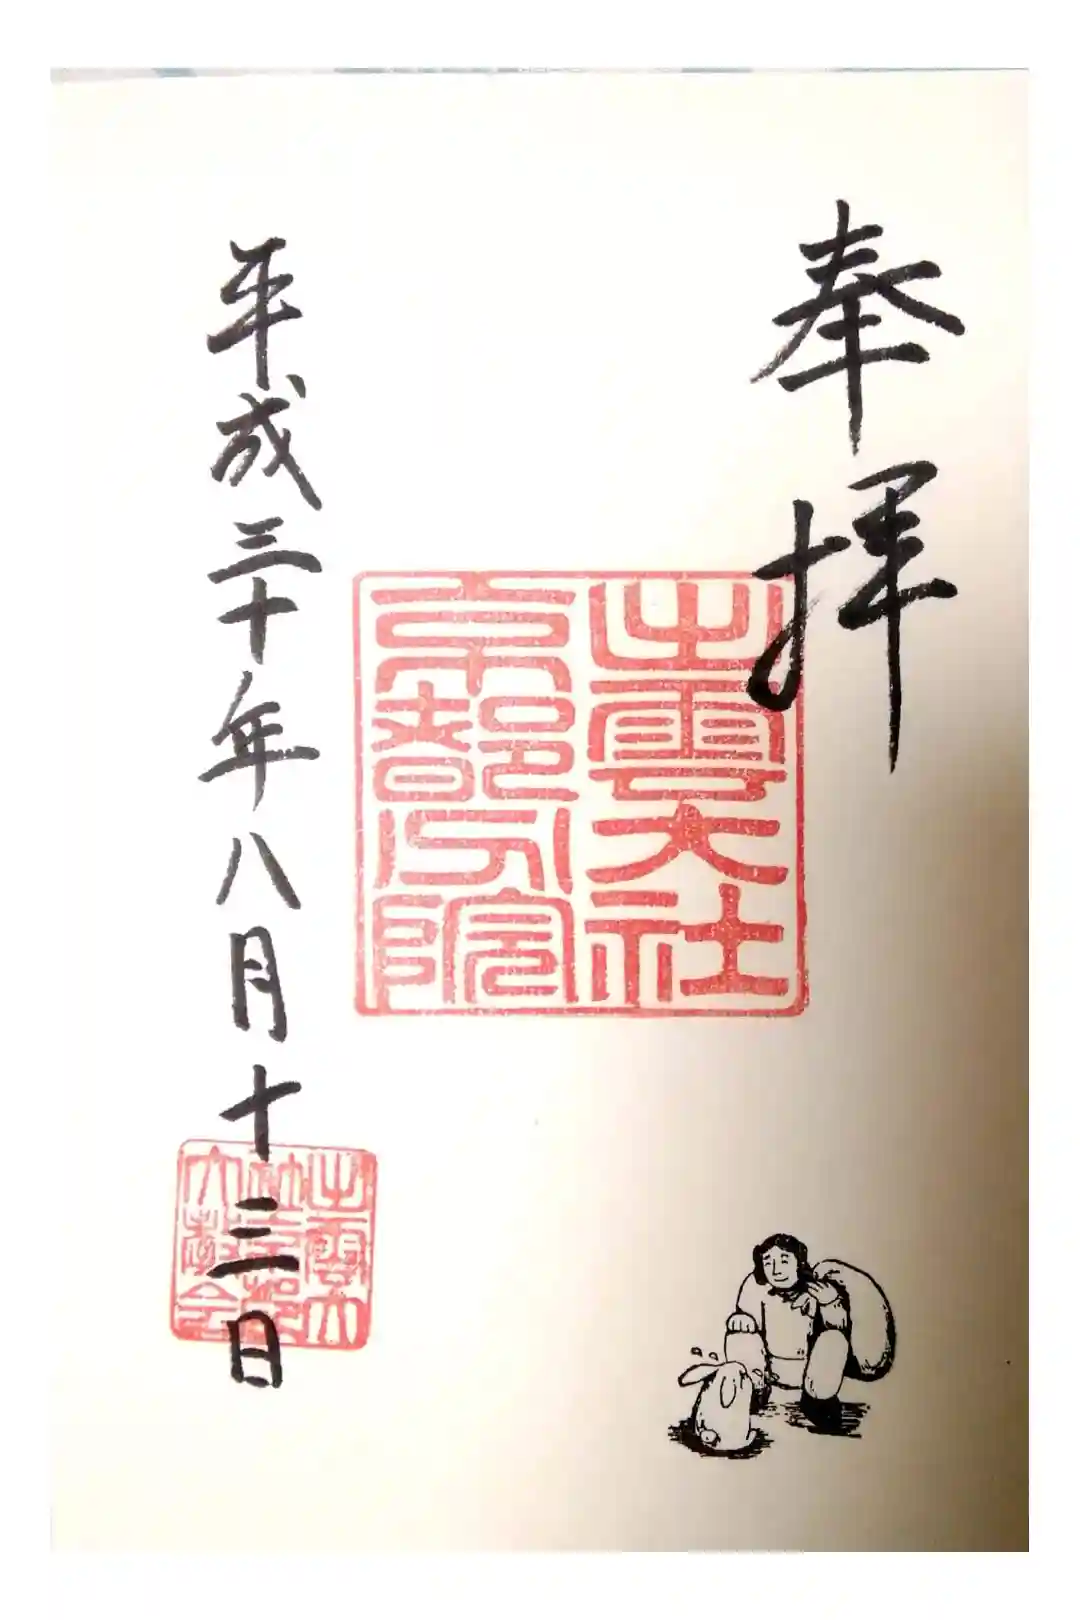 奉拝
出雲大社
京都分院
平成三十年八月十三日
出雲大
社京都
教会